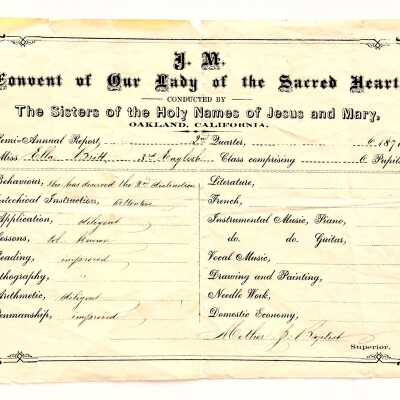 J. M.
Convent of Our Lady of the Sacred Heart
CONDUCTED BY
The Sisters of the Holy Names of Jesus and Mary,
OAKLAND, CALIFORNIA.
Semi-Annual Report 2nd Quarter, 187
Miss Ella 3rd English Class comprising 6 Pupils
Behaviour, She has deserved the 2nd distinction
Catechical Instruction, Attentive
Application, diligent
Lessons, tol. Known
Reading, improved
Orthography, "
Arithmetic, diligent
Penmanship, improved
Literature,
French,
Instrumental Music, Piano,
do. do. Guitar,
Vocal Music,
Drawing and Painting,
Needle Work,
Domestic Economy,
Mother J. Baptist
Superior.